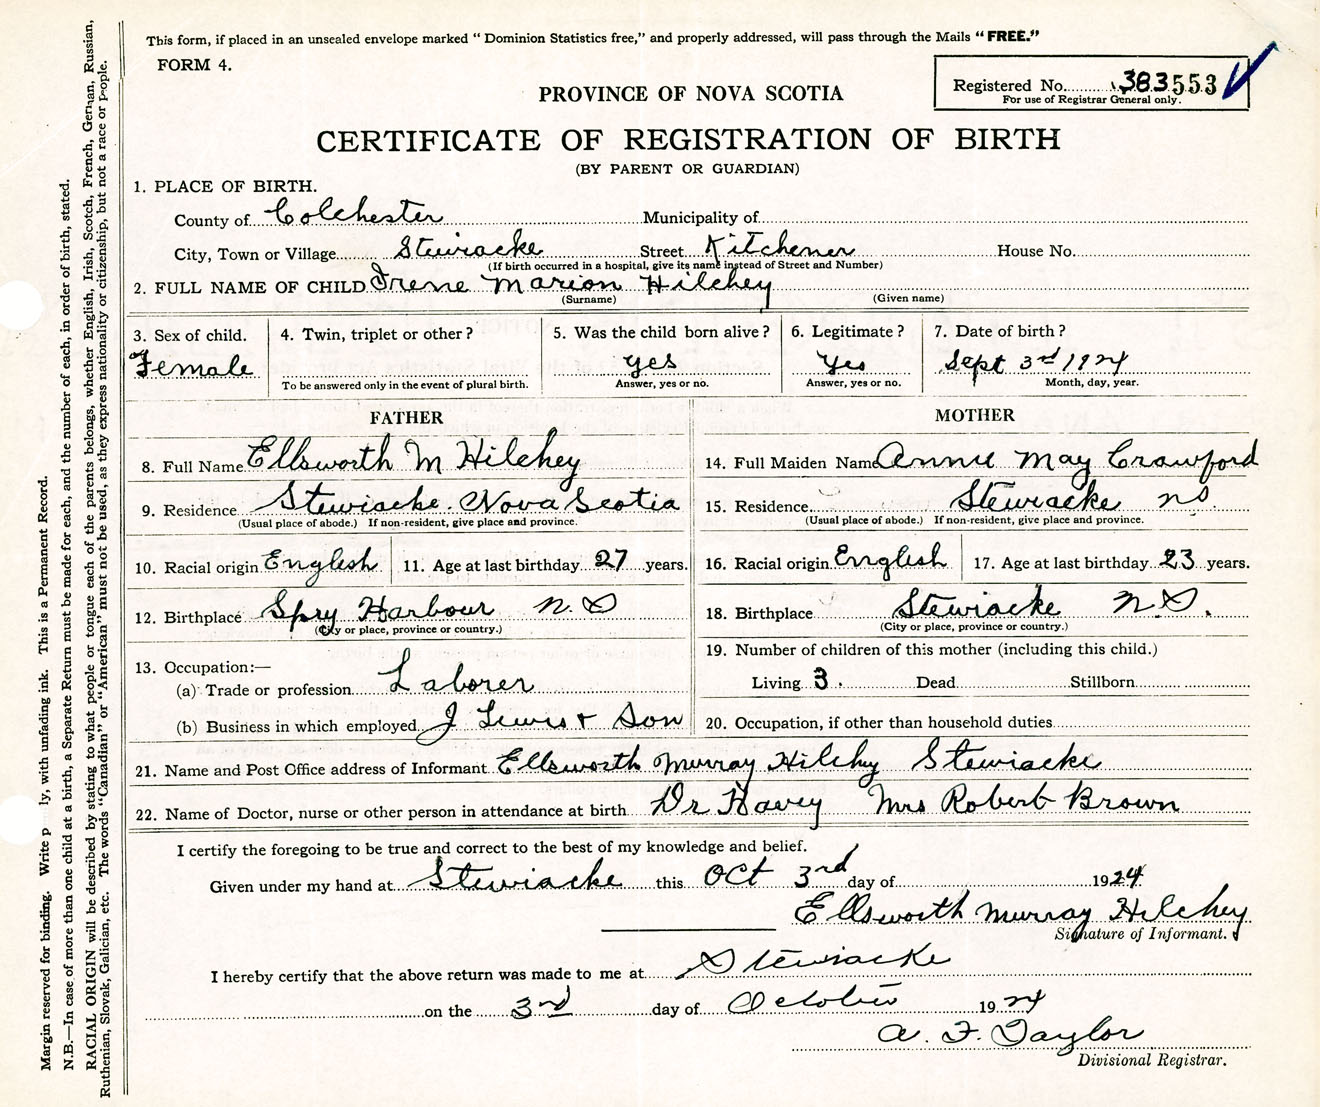 This form, if placed in an unsealed envelope marked " Dominion Statistics free," and properly addressed, will pass through the Mails " FREE."
FORM 4.
Registered No. 383553
For use of Registrar General only.
PROVINCE OF NOVA SCOTIA
CERTIFICATE OF REGISTRATION OF BIRTH
(BY PARENT OR GUARDIAN)
1. PLACE OF BIRTH.
County of Colchester Municipality of
City, Town or Village Stewiacke Street Kitchener House No.
(If birth occurred in a hospital, give its name instead of Street and Number)
2. FULL NAME OF CHILD Irene Marion Hilchey
(Surname) (Given name)
3. Sex of child. 4. Twin, triplet or other? 5. Was the child born alive? 6. Legitimate? 7. Date of birth?
Female yes Yes Sept 3rd 1924
To be answered only in the event of plural birth. Answer, yes or no. Answer, yes or no. Month, day, year.
FATHER
8. Full Name Ellsworth M Hilchey
9. Residence Stewiacke. Nova Scotia
(Usual place of abode.) If non-resident, give place and province.
10. Racial origin English 11. Age at last birthday 27 years.
12. Birthplace Spry Harbour N.S
(City or place, province or country.)
13. Occupation:—
(a) Trade or profession Laborer
(b) Business in which employed J Lewis + Son
MOTHER
14. Full Maiden Name Annie May Crawford
15. Residence Stewiacke NS.
(Usual place of abode.) If non-resident, give place and province.
16. Racial origin English 17. Age at last birthday 23 years.
18. Birthplace Stewiacke N.S.
(City or place, province or country.)
19. Number of children of this mother (including this child.)
Living 3. Dead Stillborn
20. Occupation, if other than household duties
21. Name and Post Office address of Informant Ellsworth Murray Hilchey Stewiacke
22. Name of Doctor, nurse or other person in attendance at birth Dr Havey Mrs Robert Brown
I certify the foregoing to be true and correct to the best of my knowledge and belief.
Given under my hand at Stewiacke this Oct 3rd day of 1924
Ellsworth Murray Hilchey
Signature of Informant.
I hereby certify that the above return was made to me at Stewiacke
on the 3rd day of October 1924
A. F. Taylor
Divisional Registrar.
Margin reserved for binding. Write p ly, with unfading ink. This is a Permanent Record.
N.B.—In case of more than one child at a birth, a Separate Return must be made for each, and the number of each, in order of birth, stated.
RACIAL ORIGIN will be described by stating to what people or tongue each of the parents belongs, whether English, Irish, Scotch, French, German, Russian,
Ruthenian, Slovak, Galician, etc. The words "Canadian" or "American" must not be used, as they express nationality or citizenship, but not a race or people.